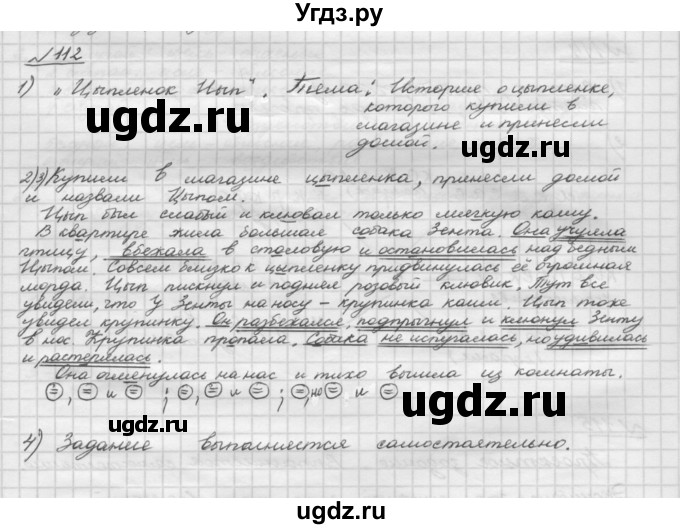 Угдз.ру
№112
1) „Цыпленок Цып". Тема: История о цыпленке,
которого купили в
магазине и принесли
домой.
ugdz.ru
ugdz.ru
2)3) Купили в магазине цыпленка, принесли домой
и назвали Цыпом.
Цып был слабый и клювал только мягкую кашу.
В квартире жила большая собака Зента. Она учуяла
птицу, вбежала в столовую и остановилась над бедным
Цыпом. Совсем близко к цыпленку придвинулась её огромная
морда. Цып пискнул и поднял розовый клювик. Тут все
увидели, что у Зенты на носу - крупинка каши. Цып тоже
увидел крупинку. Он разбежался, подпрыгнул и клюнул Зенту
в нос. Крупинка пропала. Собака не испугалась, но удивилась
и растерялась.
ugdz.ru
ugdz.ru
Она оглянулась на нас и тихо вышла из комнаты.
4) Задание выполняется самостоятельно.
ugdz.ru
ugdz.ru